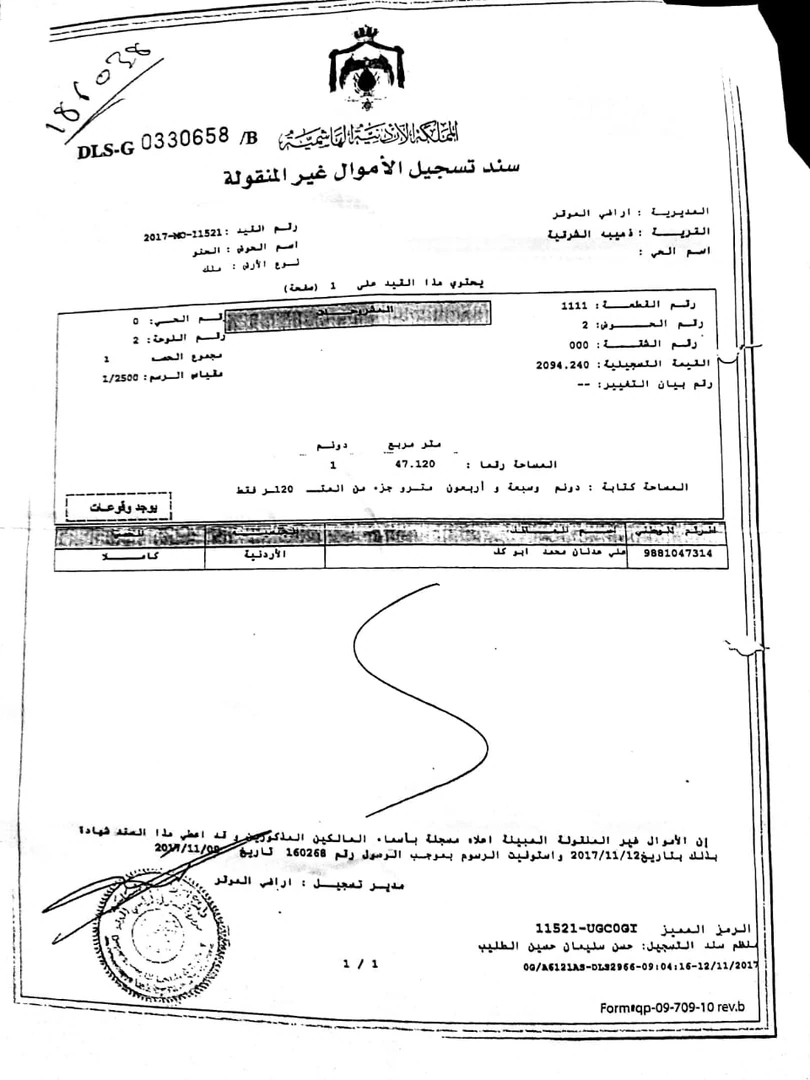 185038
DLS-G 0330658 /B
المملكة الأردنية الهاشمية
سند تسجيل الأموال غير المنقولة
المديرية : اراضي الموقر
رقم القيد : 2017-MO-11521
القرية : ذهيبه الشرقية
اسم الحوض : الحنو
اسم الحي :
نوع الأرض : ملك
يحتوي هذا القيد على 1 (صفحة)
المفروزات
رقم القطعة : 1111
رقم الحي : 0
رقم الحوض : 2
رقم اللوحة : 2
رقم الشقة : 000
مجموع الحصص 1
القيمة التسجيلية : 2094.240
مقياس الرسم : 1/2500
رقم بيان التغيير : --
متر مربع دونم
المساحة رقما : 47.120 1
المساحة كتابة : دونم وسبعة و أربعون مترو جزء من المتر 120 فقط
يوجد وقوعات
الرقم الوطني اسم المالك الجنسية الحصص
9881047314 علي عدنان محمد ابو كف الأردنية كاملا
إن الأموال غير المنقولة المبينة اعلاه مسجلة بأسماء المالكين المذكورين و قد اعطي هذا السند شهادة
بذلك بتاريخ 2017/11/12 واستوفيت الرسوم بموجب الوصول رقم 160268 تاريخ 2017/11/09
مدير تسجيل : اراضي الموقر
الرمز المميز 11521-UGC0GI
منظم سند التسجيل: حسن سليمان حسين الطليب
0G/A6121AS-DLS2966-09:04:16-12/11/2017
1 / 1
Form#qp-09-709-10 rev.b